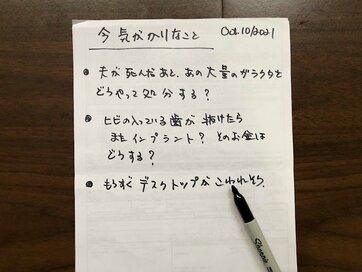 今 気がかりなこと
Oct.10/2021
● 夫が死んだあと、あの大量のガラクタを
どうやって処分する?
● ヒビの入っている歯が抜けたら
またインプラント? そのお金は
どうする?
● もうすぐデスクトップがこわれそう
Sharpie